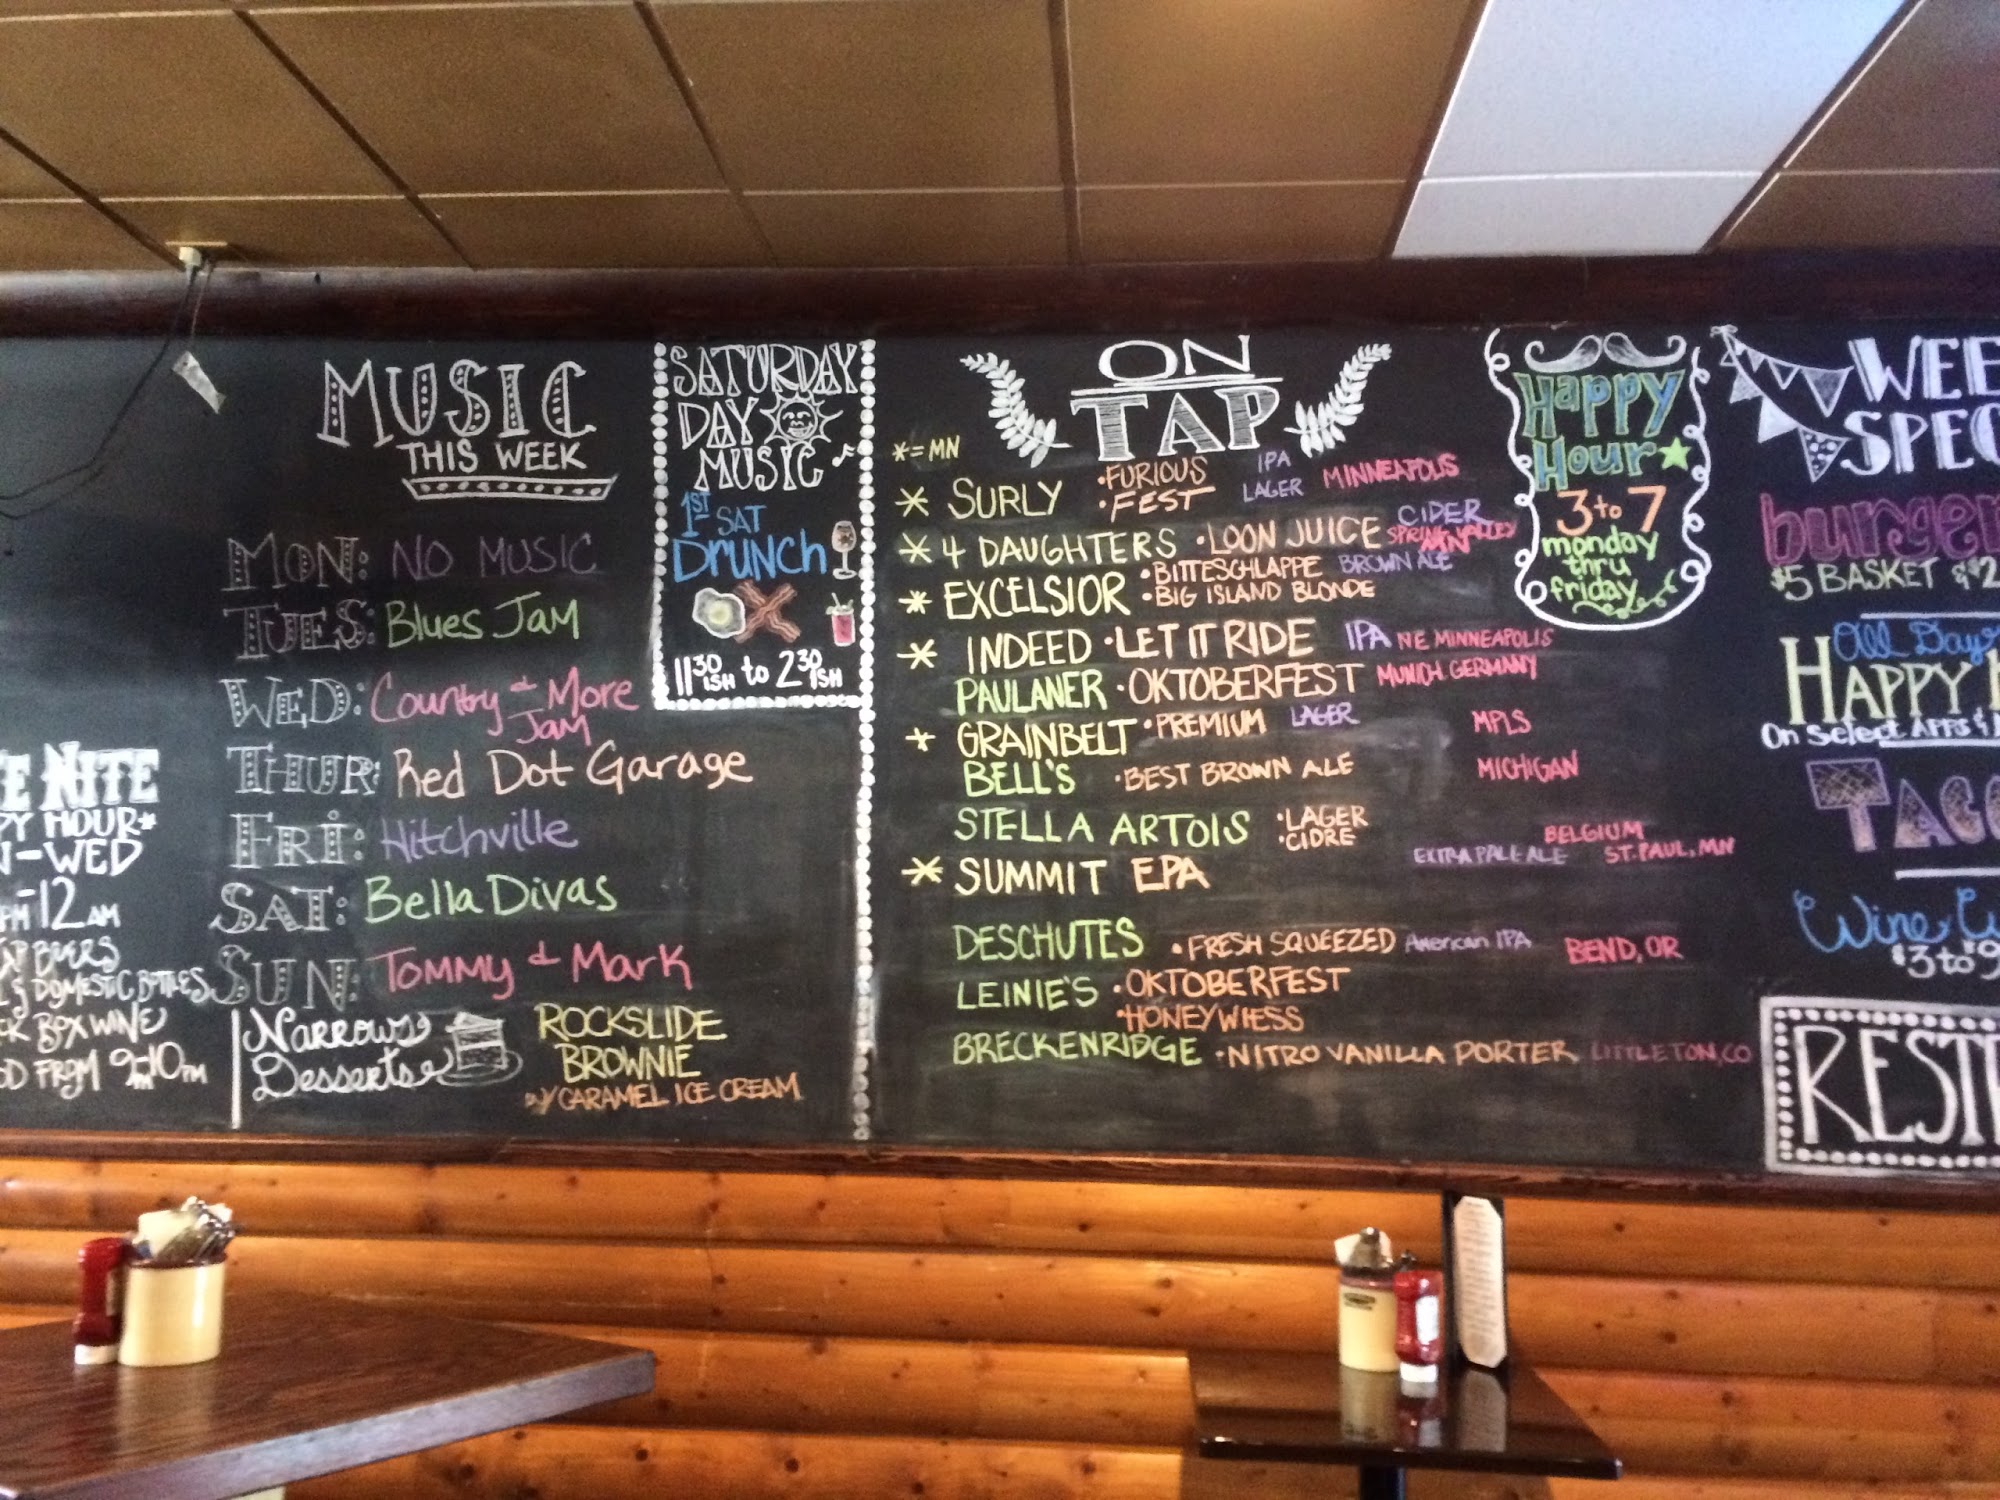 MUSIC
THIS WEEK
MON: NO MUSIC
TUES: Blues Jam
WED: Country & More
Jam
THUR: Red Dot Garage
FRI: Hitchville
SAT: Bella Divas
SUN: Tommy & Mark
NITE
HOUR*
-WED
-12 AM
BEERS
DOMESTIC BOTTLES
BOX WINE
FROM 9PM-10PM
Narrows
Desserts
ROCKSLIDE
BROWNIE
W/ CARAMEL ICE CREAM
SATURDAY
DAY
MUSIC
1ST SAT
Drunch
11 30 ISH to 2 30 ISH
ON
TAP
*=MN
* SURLY •FURIOUS IPA MINNEAPOLIS
•FEST LAGER
* 4 DAUGHTERS •LOON JUICE CIDER SPRING VALLEY MN
* EXCELSIOR •BITTESCHLAPPE BROWN ALE
•BIG ISLAND BLONDE
* INDEED •LET IT RIDE IPA NE MINNEAPOLIS
PAULANER •OKTOBERFEST MUNICH GERMANY
* GRAINBELT •PREMIUM LAGER MPLS
BELL'S •BEST BROWN ALE MICHIGAN
STELLA ARTOIS •LAGER
•CIDRE BELGIUM
* SUMMIT EPA EXTRA PALE ALE ST. PAUL, MN
DESCHUTES •FRESH SQUEEZED American IPA BEND, OR
LEINIE'S •OKTOBERFEST
•HONEYWIESS
BRECKENRIDGE •NITRO VANILLA PORTER LITTLETON, CO
Happy
Hour
3 to 7
monday
thru
friday
WEE
SPEC
burger
$5 BASKET
All Day
HAPPY
On Select APPS
TAC
Wine
$3 to $9
REST